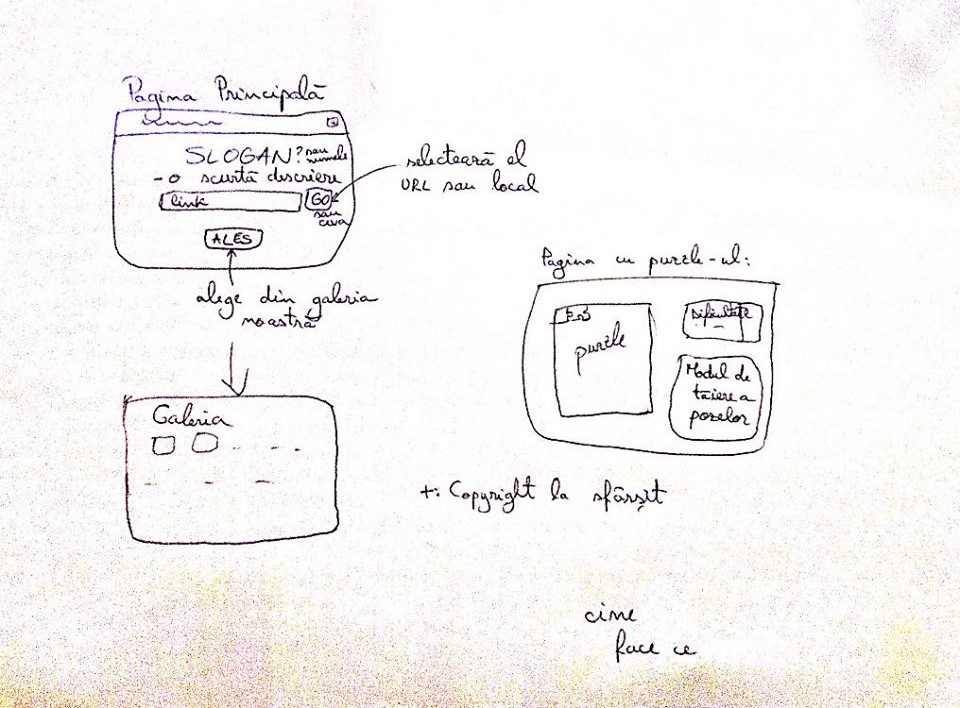 Pagina Principală
SLOGAN? sau
numele
- o scurtă descriere
link
GO
sau
ceva
ALES
selectează el
URL sau local
alege din galeria
noastră
Galeria
Pagina cu puzzle-ul:
puzzle
Dificultate
Modul de
tăiere a
pozelor
+: Copyright la sfârșit
cine
face ce